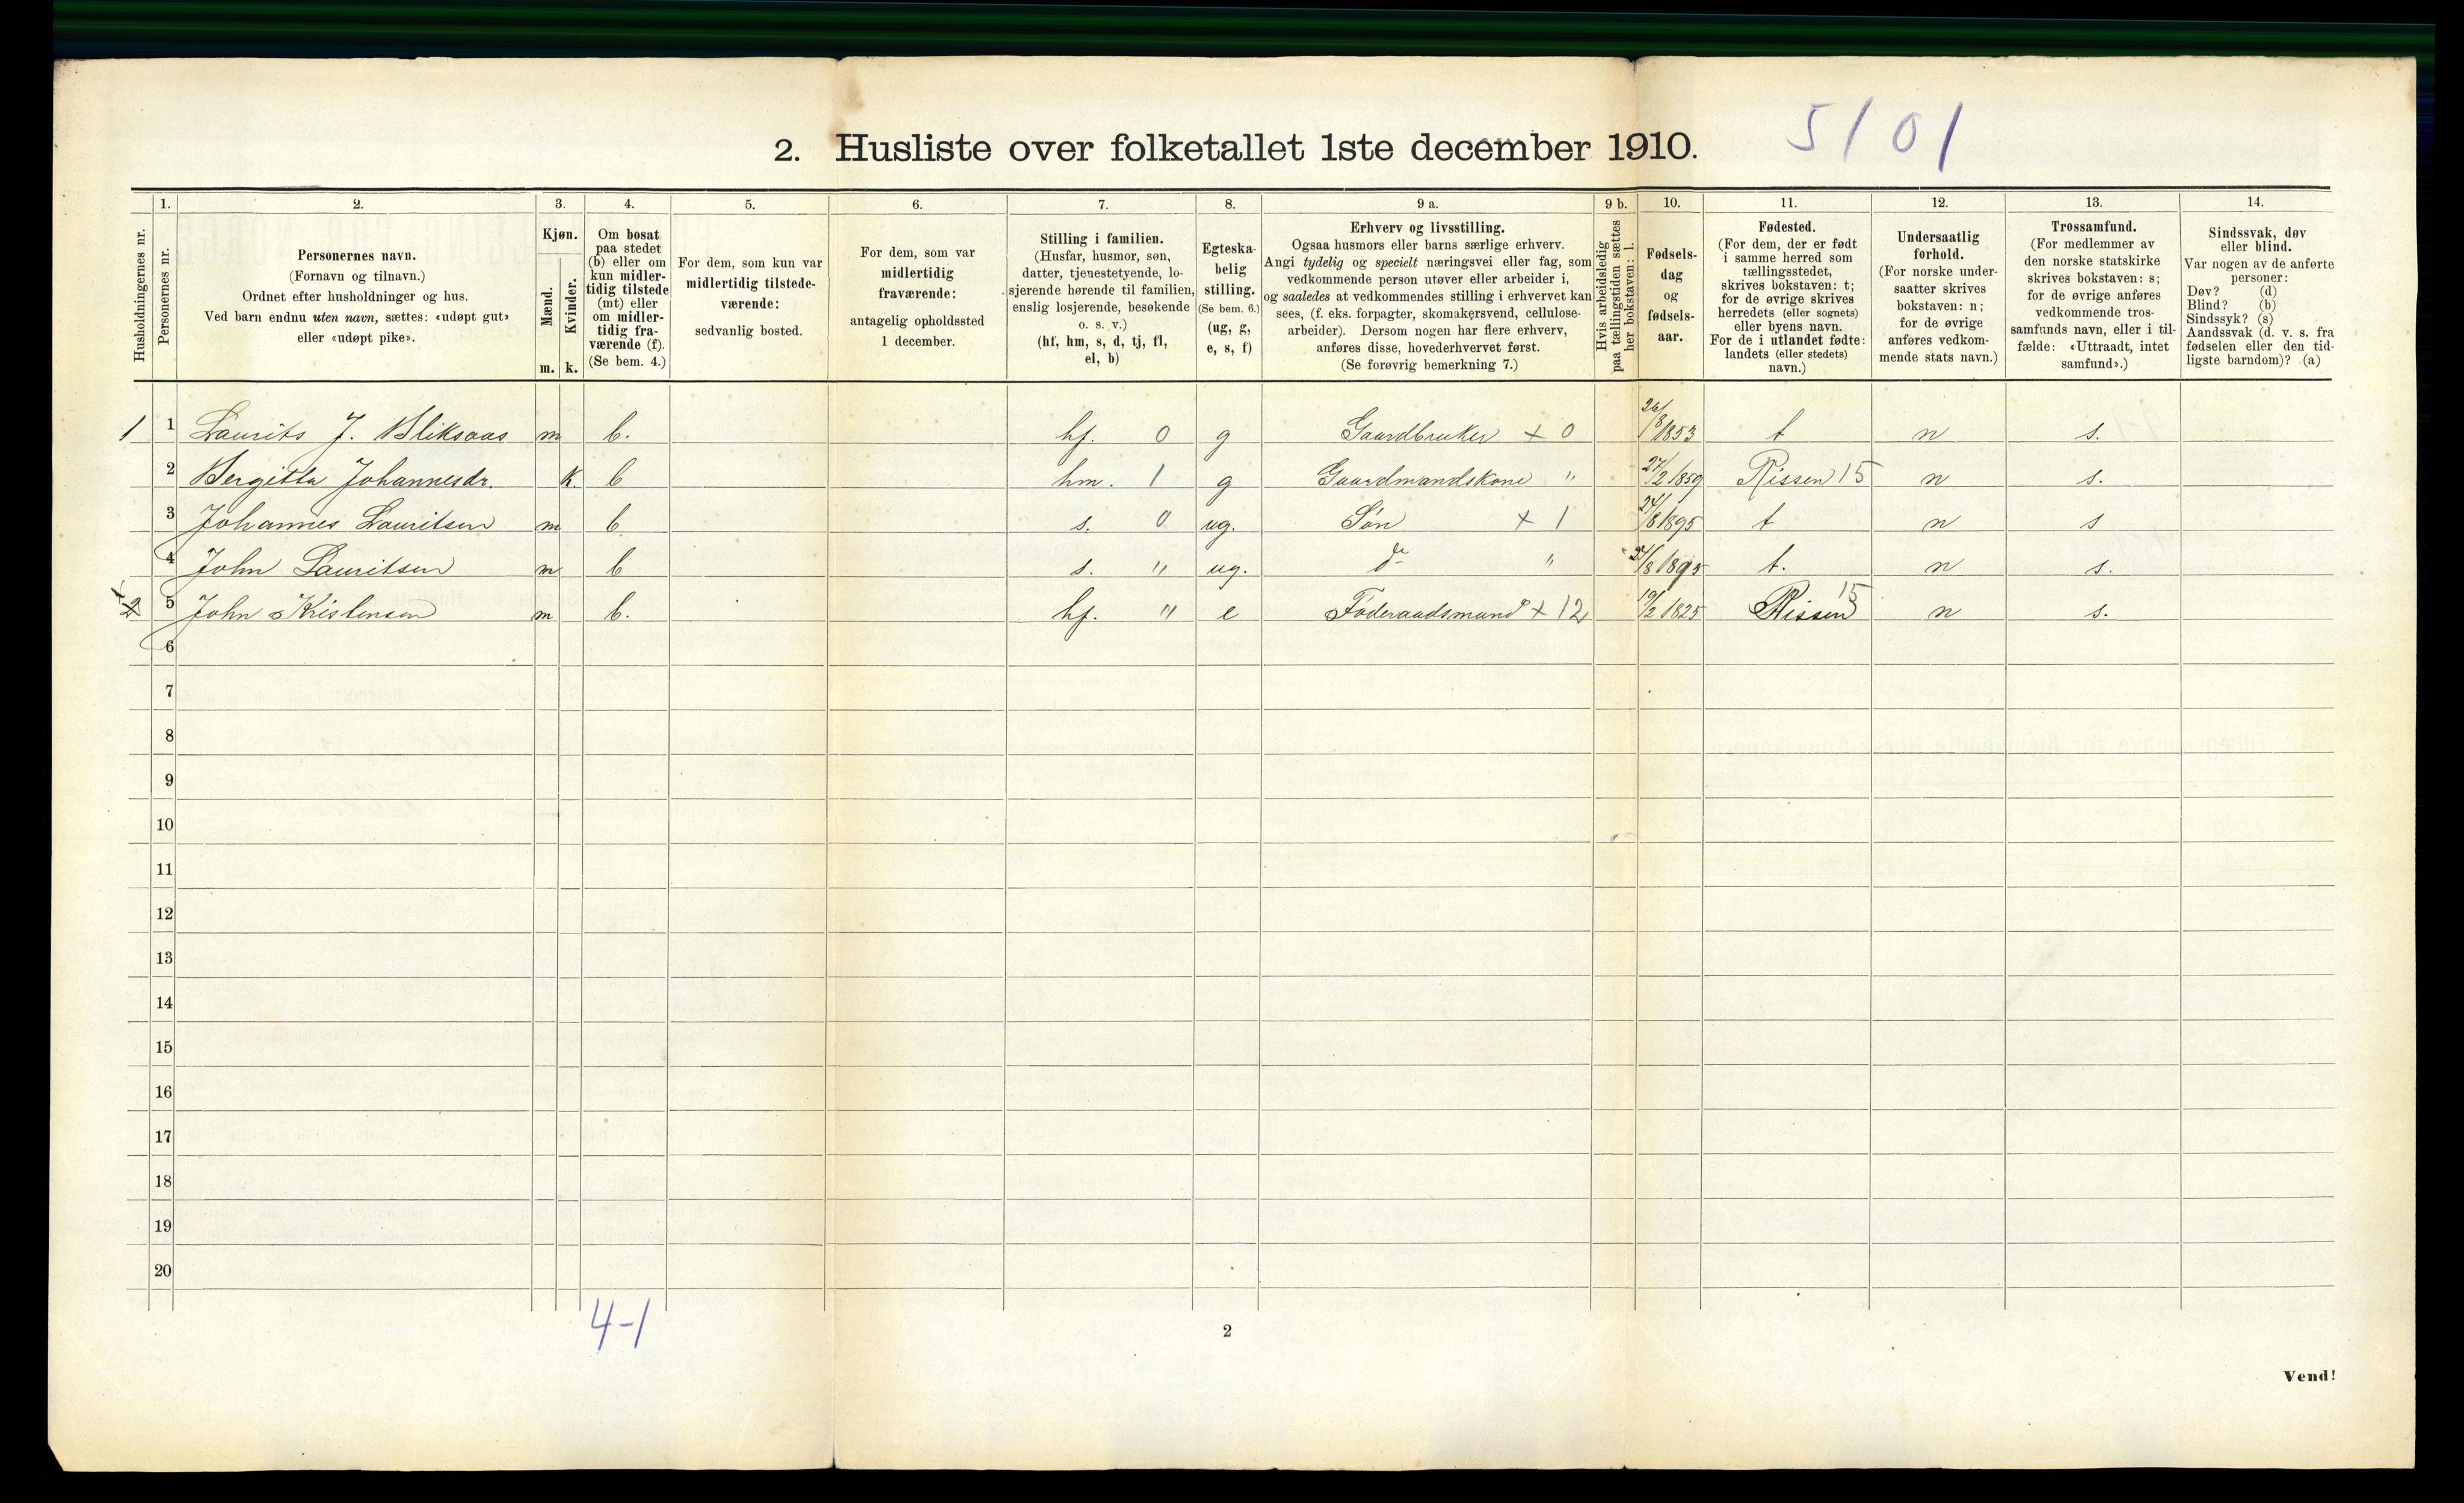 2. Husliste over folketallet 1ste december 1910. 5101
Husholdningernes nr.
1. Personernes nr.
2. Personernes navn. (Fornavn og tilnavn.) Ordnet efter husholdninger og hus. Ved barn endnu uten navn, sættes: «udøpt gut» eller «udøpt pike».
3. Kjøn. Mænd. m. Kvinder. k.
4. Om bosat paa stedet (b) eller om kun midlertidig tilstede (mt) eller om midlertidig fraværende (f). (Se bem. 4.)
5. For dem, som kun var midlertidig tilstedeværende: sedvanlig bosted.
6. For dem, som var midlertidig fraværende: antagelig opholdssted 1 december.
7. Stilling i familien. (Husfar, husmor, søn, datter, tjenestetyende, losjerende hørende til familien, enslig losjerende, besøkende o. s. v.) (hf, hm, s, d, tj, fl, el, b)
8. Egteskabelig stilling. (Se bem. 6.) (ug, g, e, s, f)
9 a. Erhverv og livsstilling. Ogsaa husmors eller barns særlige erhverv. Angi tydelig og specielt næringsvei eller fag, som vedkommende person utøver eller arbeider i, og saaledes at vedkommendes stilling i erhvervet kan sees, (f. eks. forpagter, skomakersvend, cellulosearbeider). Dersom nogen har flere erhverv, anføres disse, hovederhvervet først. (Se forøvrig bemerkning 7.)
9 b. Hvis arbeidsledig paa tællingstiden sættes her bokstaven: l.
10. Fødselsdag og fødselsaar.
11. Fødested. (For dem, der er født i samme herred som tællingsstedet, skrives bokstaven: t; for de øvrige skrives herredets (eller sognets) eller byens navn. For de i utlandet fødte: landets (eller stedets) navn.)
12. Undersaatlig forhold. (For norske undersaatter skrives bokstaven: n; for de øvrige anføres vedkommende stats navn.)
13. Trossamfund. (For medlemmer av den norske statskirke skrives bokstaven: s; for de øvrige anføres vedkommende trossamfunds navn, eller i tilfælde: «Uttraadt, intet samfund».)
14. Sindssvak, døv eller blind. Var nogen av de anførte personer: Døv? (d) Blind? (b) Sindssyk? (s) Aandssvak (d. v. s. fra fødselen eller den tidligste barndom)? (a)
1 1 Laurits J. Bliksaas m b. hf. 0 g Gaardbruker + 0 26/8 1853 t n s.
2 Bergitta Johannesdr. k. b hm. 1 g Gaardmandskone " 27/2 1859 Rissen 15 n s.
3 Johannes Lauritsen m b s. 0 ug. Søn + 1 24/8 1895 t n s
4 John Lauritsen m b s. " ug. do " 24/8 1895 t. n s.
2 5 John Kristensen m b. hf. " e Føderaadsmand + 12 19/2 1825 Rissen 15 n s.
6
7
8
9
10
11
12
13
14
15
16
17
18
19
20
4-1
2
Vend!